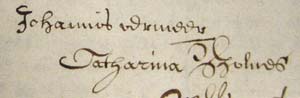 Johannis vermeer
Catharina Bholnes